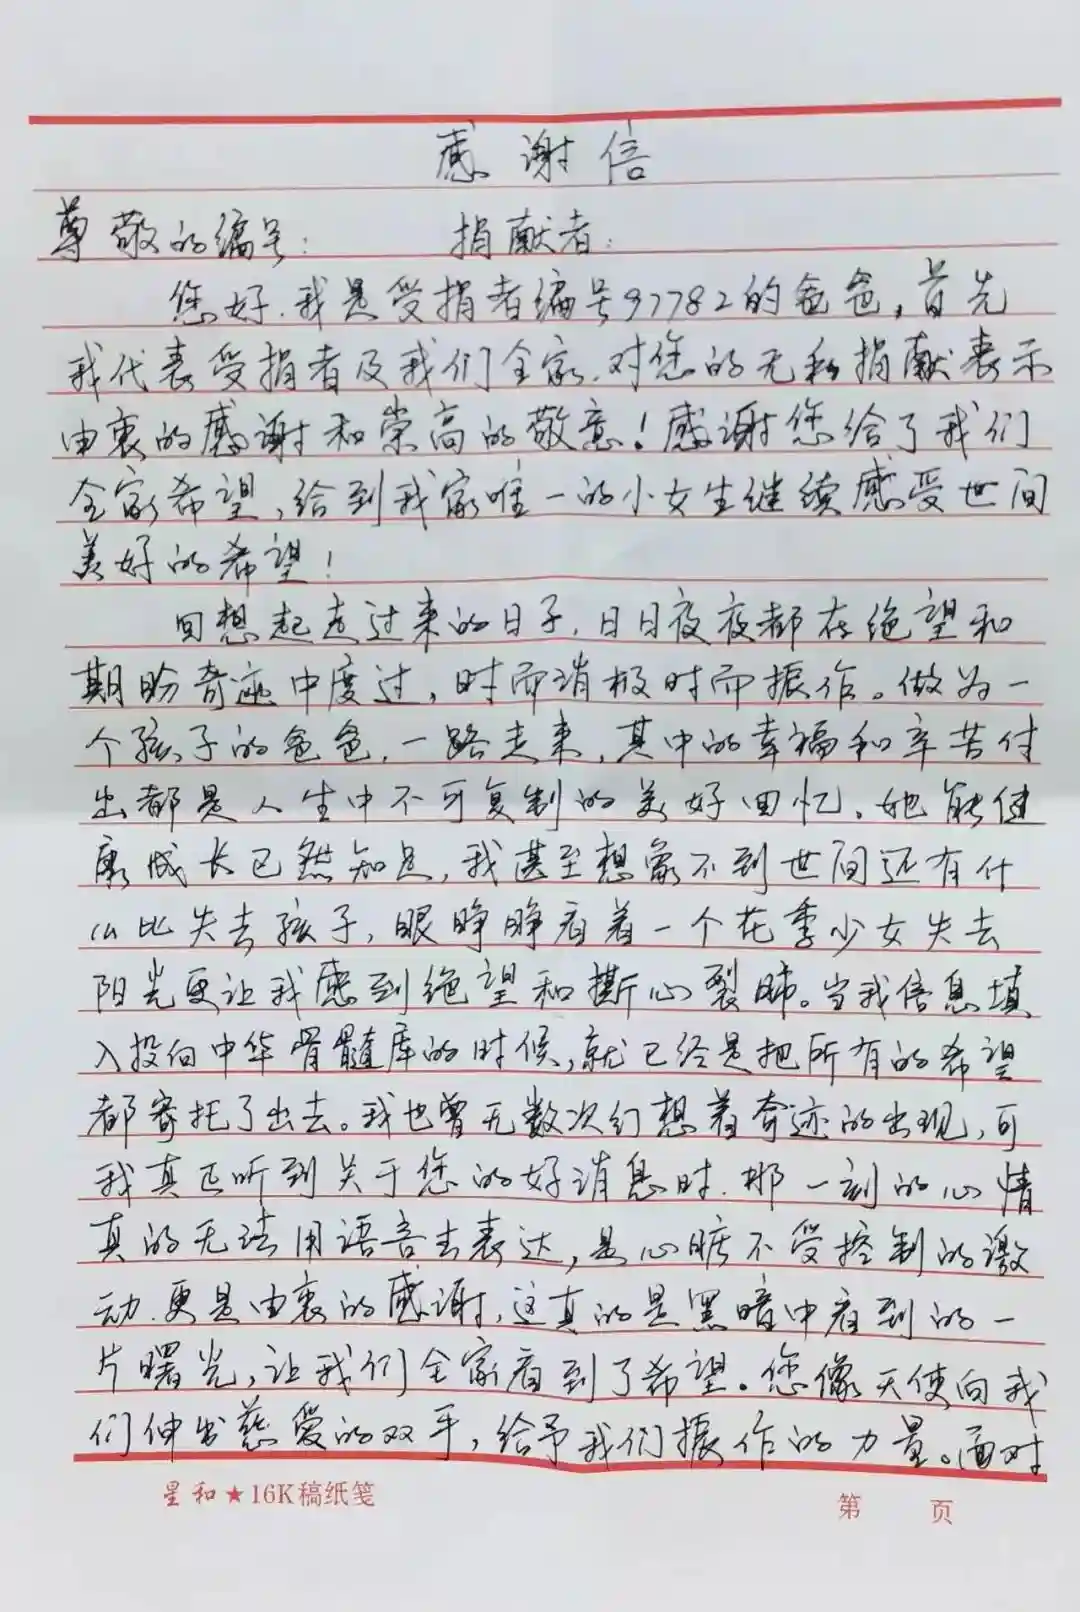 感谢信
尊敬的编号: 捐献者:
您好.我是受捐者编号97782的爸爸,首先
我代表受捐者及我们全家.对您的无私捐献表示
由衷的感谢和崇高的敬意!感谢您给了我们
全家希望,给到我家唯一的小女生继续感受世间
美好的希望!
回想起走过来的日子.日日夜夜都在绝望和
期盼奇迹中度过,时而消极时而振作。做为一
个孩子的爸爸.一路走来,其中的幸福和辛苦付
出都是人生中不可复制的美好回忆。她能健
康成长已然知足,我甚至想象不到世间还有什
么比失去孩子,眼睁睁看着一个花季少女失去
阳光更让我感到绝望和撕心裂肺。当我信息填
入投向中华骨髓库的时候,就已经是把所有的希望
都寄托了出去。我也曾无数次幻想着奇迹的出现,可
我真正听到关于您的好消息时.那一刻的心情
真的无法用语言去表达,是心脏不受控制的激
动.更是由衷的感谢,这真的是黑暗中看到的一
片曙光,让我们全家看到了希望。您像天使向我
们伸出慈爱的双手,给予我们振作的力量。面对
星和★16K稿纸笺
第 页